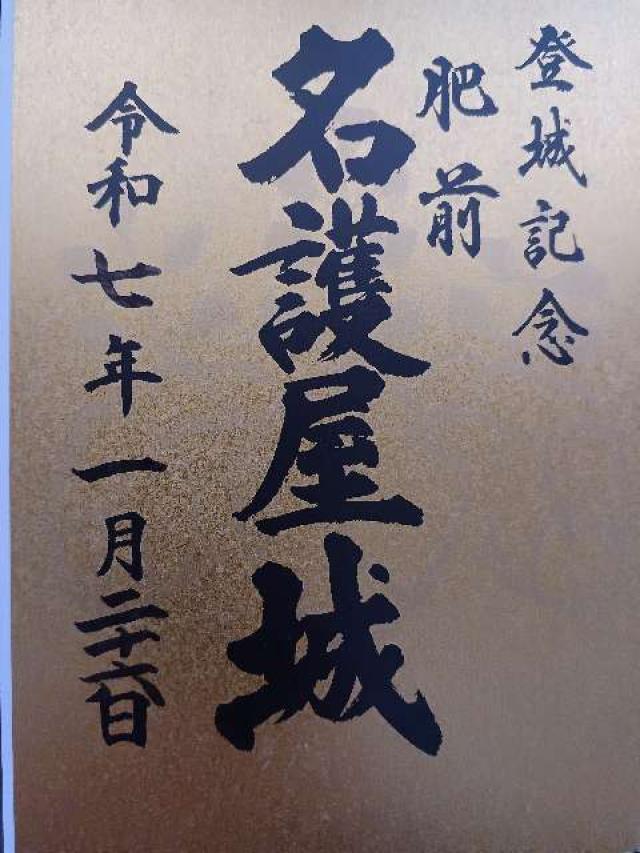 登城記念
肥前
名護屋城
令和七年一月二十六日